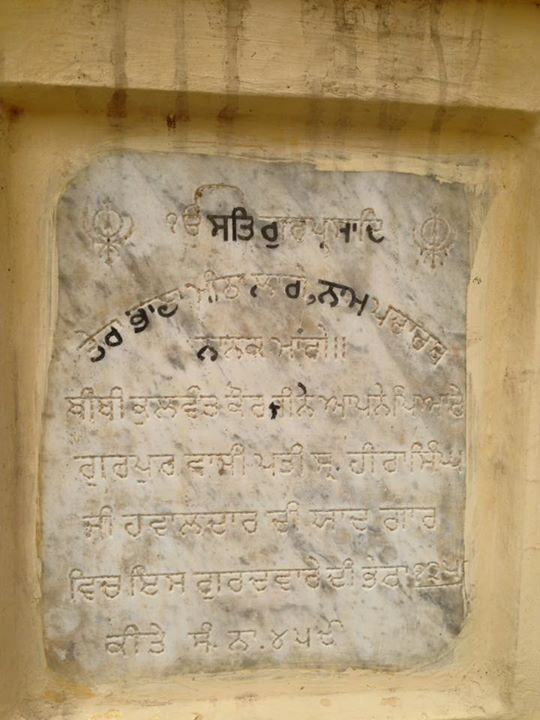 ੴ ਸਤਿਗੁਰ ਪ੍ਰਸਾਦਿ
ਤੇਰਾ ਭਾਣਾ ਮੀਠਾ ਲਾਗੇ ਹਰ, ਨਾਮ ਪਦਾਰਥ
ਨਾਨਕ ਮਾਂਗੇ॥
ਬੀਬੀ ਕੁਲਵੰਤ ਕੌਰ ਜੀ ਨੇ ਆਪਨੇ ਪਿਆਰੇ
ਗੁਰਪੁਰ ਵਾਸੀ ਪਤੀ ਸ੍ਰ. ਹੀਰਾ ਸਿੰਘ
ਜੀ ਹਵਾਲਦਾਰ ਦੀ ਯਾਦ ਗਾਰ
ਵਿਚ ਇਸ ਗੁਰਦਵਾਰੇ ਦੀ ਭੇਟਾ
ਕੀਤੇ ਸੰ. ਨਾ.